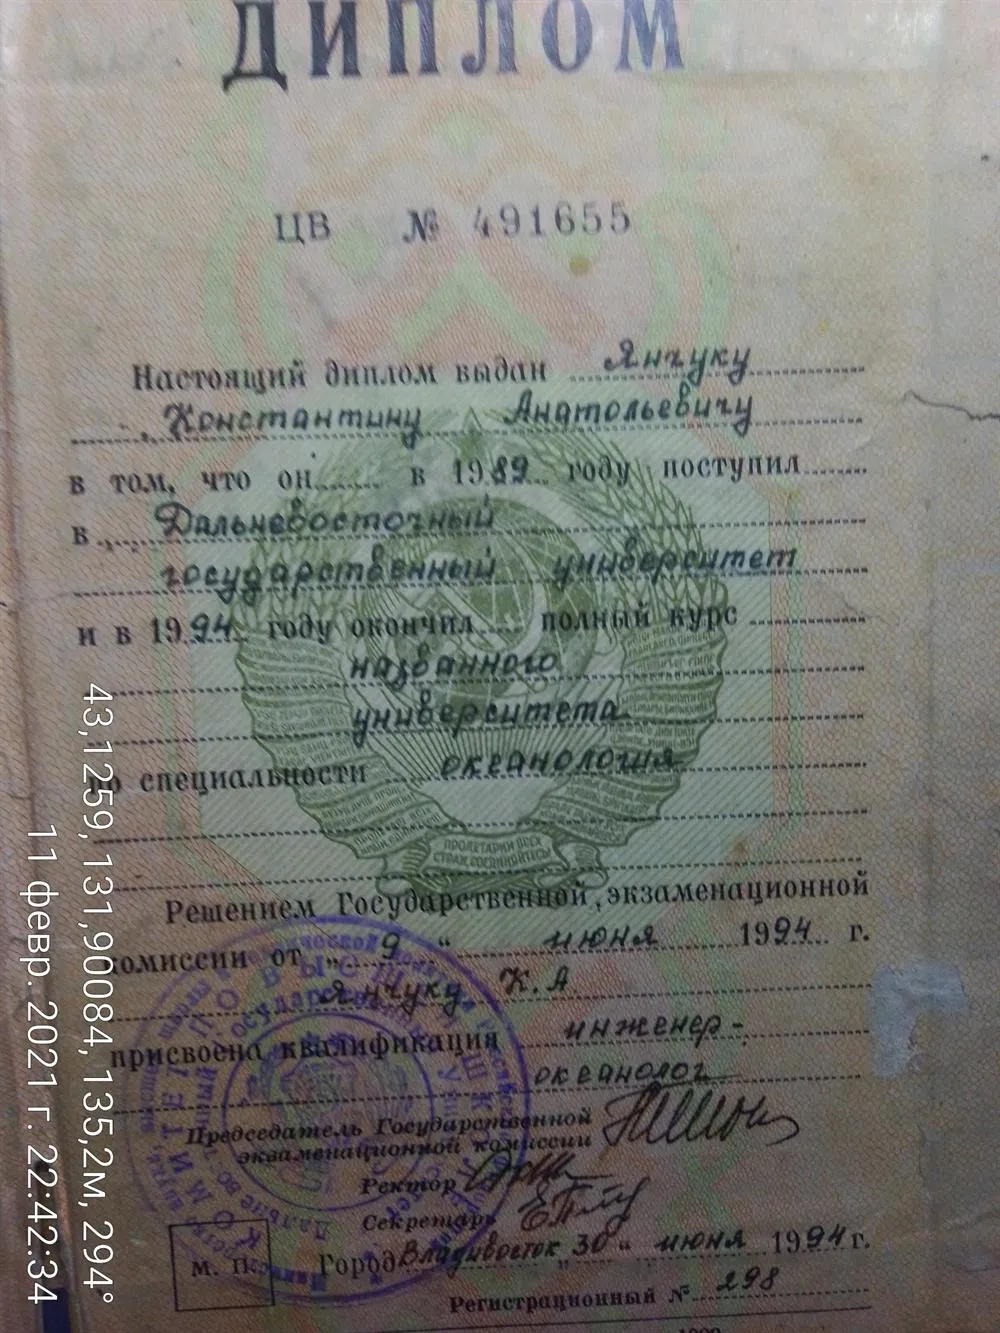 ДИПЛОМ
ЦВ № 491655
Настоящий диплом выдан Янчуку
Константину Анатольевичу
в том, что он в 1989 году поступил
в Дальневосточный
государственный университет
и в 1994 году окончил полный курс
названного
университета
по специальности океанология
ПРОЛЕТАРИИ ВСЕХ
СТРАН, СОЕДИНЯЙТЕСЬ!
Решением Государственной экзаменационной
комиссии от „ 9 “ июня 1994 г.
Янчуку К.А
присвоена квалификация инженер-
океанолог
Председатель Государственной
экзаменационной комиссии
Ректор
Секретарь
Город Владивосток „ 30 “ июня 1994 г.
М. П.
Регистрационный № 298
43,1259, 131,90084, 135,2м, 294°
11 февр. 2021 г. 22:42:34